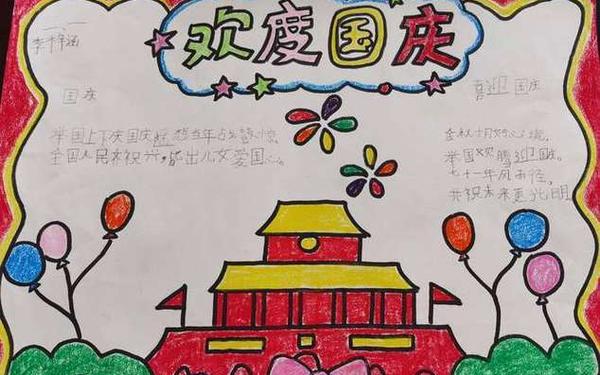 欢度国庆
李梓涵
国庆
举国上下庆国庆 想当年
全国人民来祝兴, 出儿女爱国心。
喜迎国庆
金秋十月好心境,
举国欢腾迎国庆。
七十一年风雨径,
共祝未来更光明